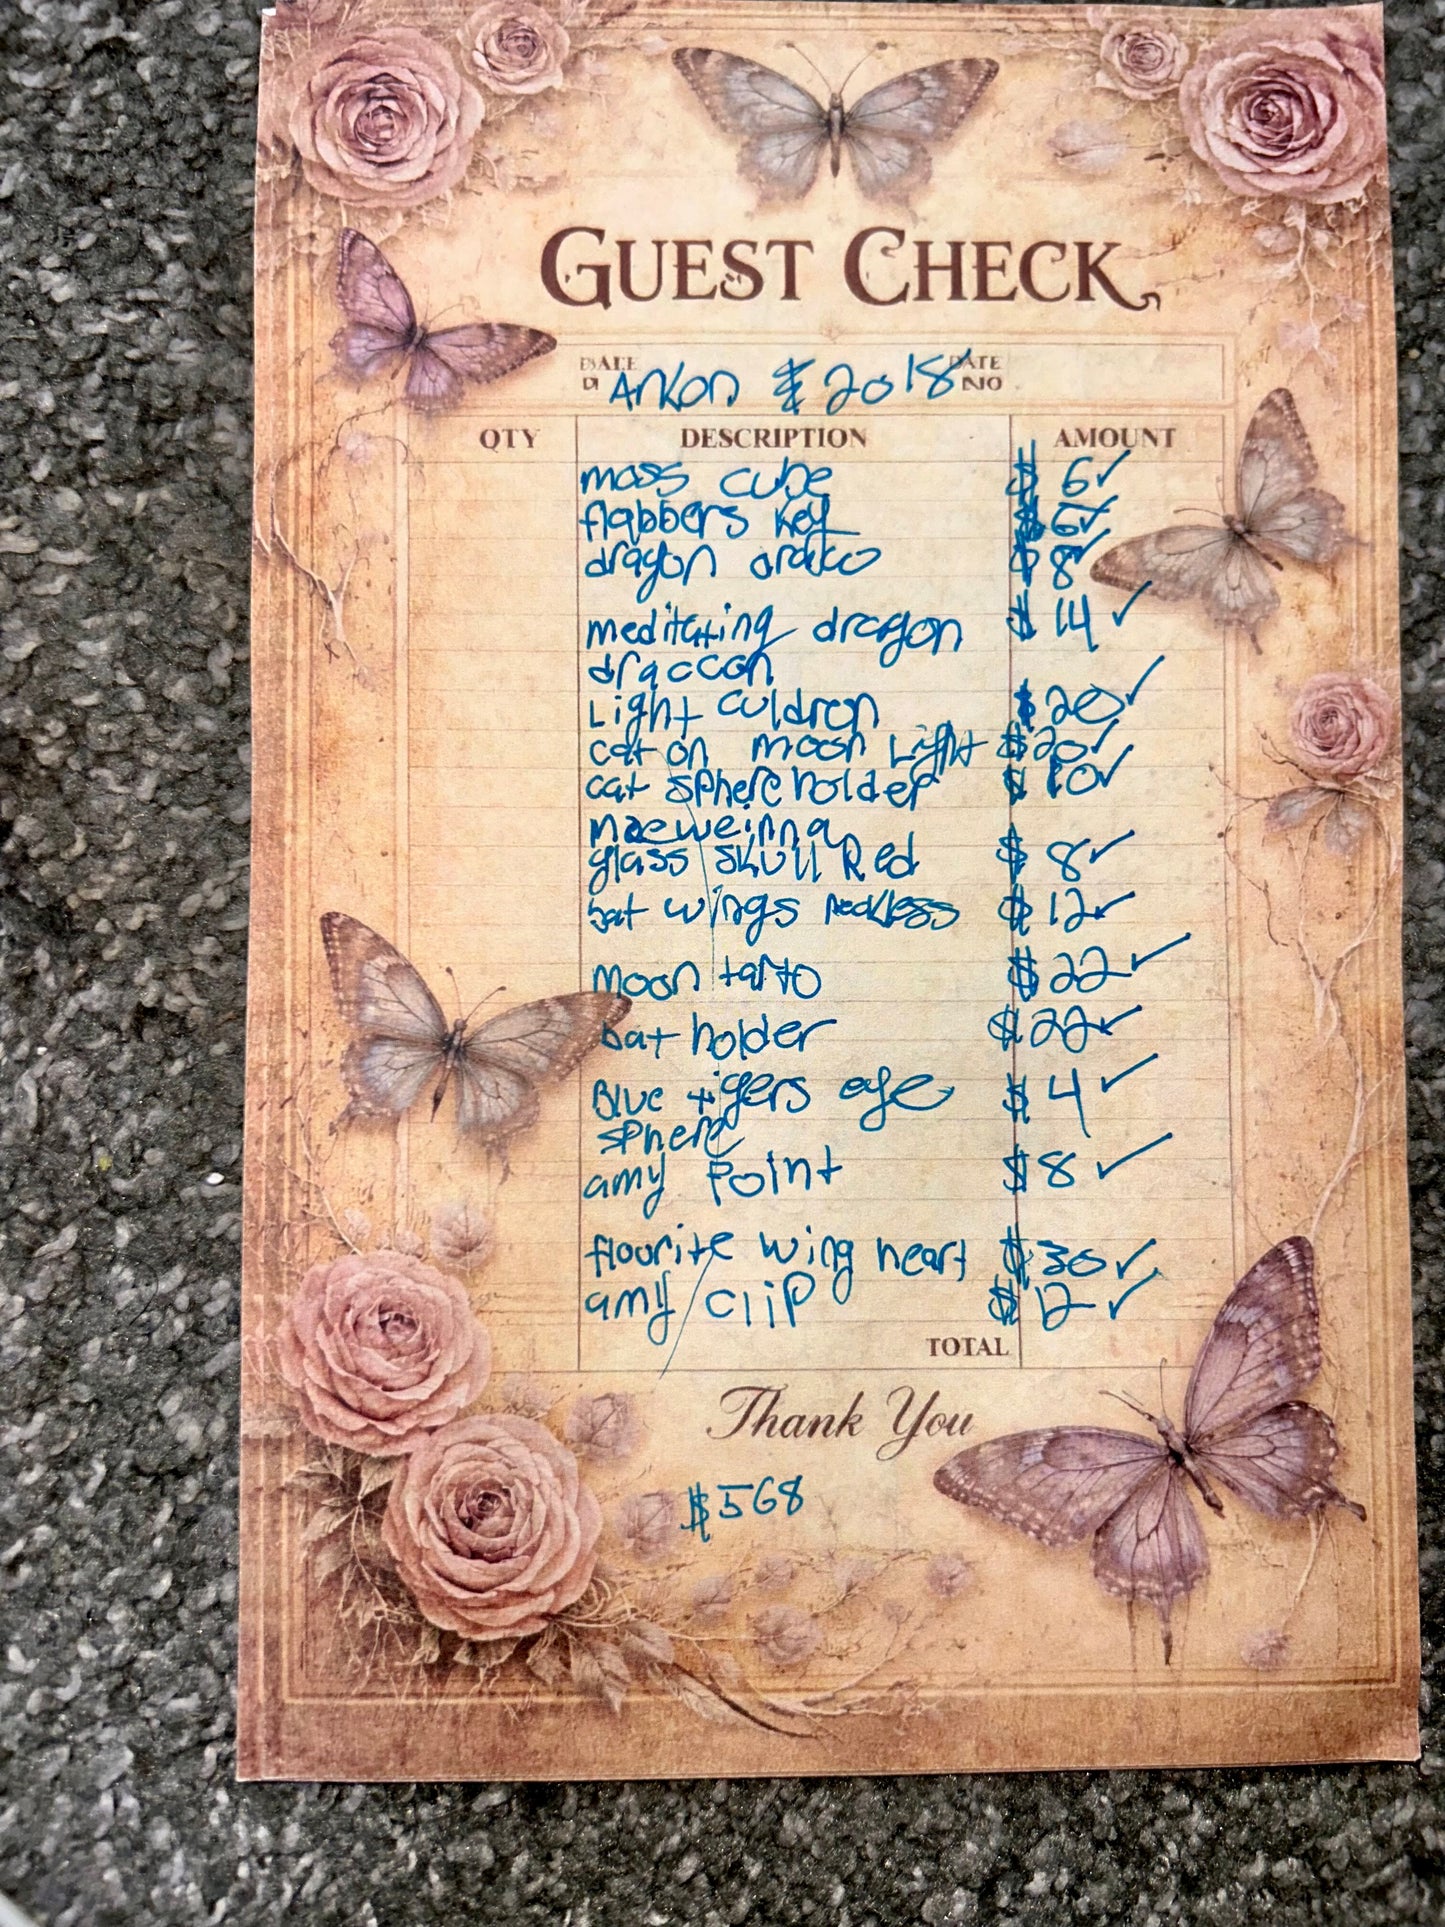 GUEST CHECK
DATE NO
Arkon $ 2018
QTY DESCRIPTION AMOUNT
moss cube $ 6 ✓
flabbers key $6 ✓
dragon $ 8 ✓
meditating dragon $ 14 ✓
draccon
Light culdron $20 ✓
cat on moon Light $20 ✓
cat sphere holder $ 10 ✓
glass skull Red $ 8 ✓
bat wings neckless $ 12 ✓
moon tarto $22 ✓
bat holder $22 ✓
Blue tigers eye $ 4 ✓
sphere
amy point $8 ✓
flourite wing heart $30 ✓
amy clip $ 12 ✓
TOTAL
Thank You
$568